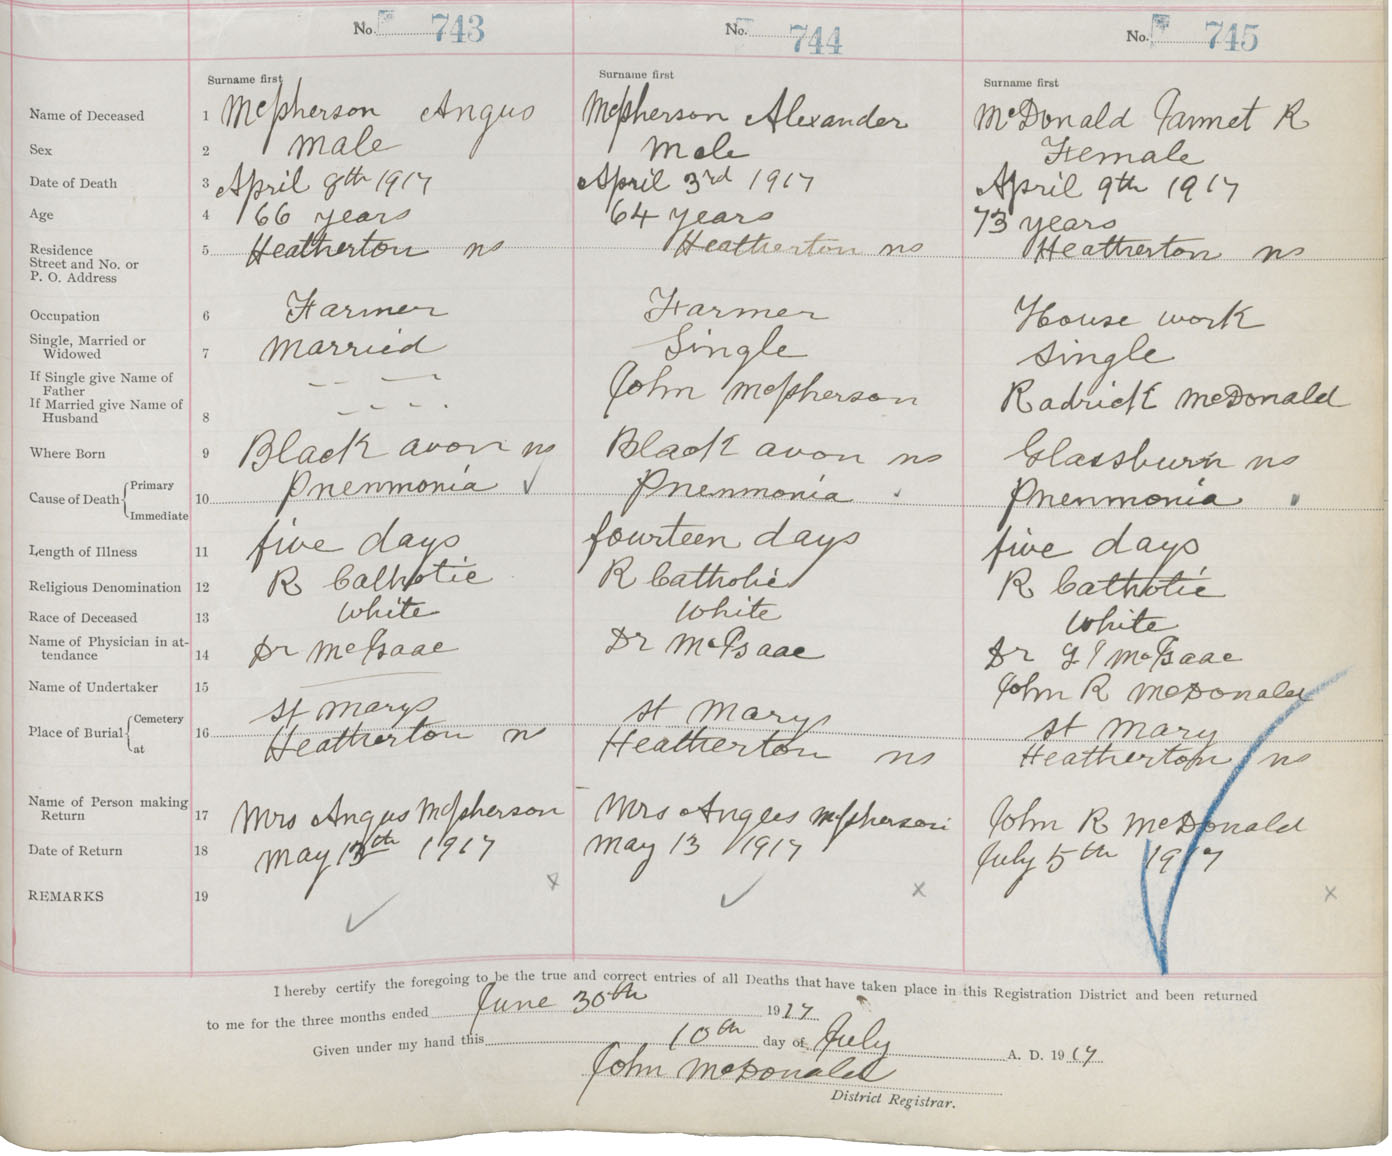 No. 743 No. 744 No. 745
Surname first Surname first Surname first
Name of Deceased 1 McPherson Angus McPherson Alexander McDonald Jannet R
Sex 2 Male Male Female
Date of Death 3 April 9th 1917 April 3rd 1917 April 9th 1917
Age 4 66 years 64 years 73 years
Residence
Street and No. or
P. O. Address 5 Heatherton ns Heatherton ns Heatherton ns
Occupation 6 Farmer Farmer House work
Single, Married or
Widowed 7 Married Single Single
If Single give Name of
Father
If Married give Name of
Husband 8 John McPherson Radrick McDonald
Where Born 9 Black avon ns Black avon ns Glassburn ns
Cause of Death { Primary
Immediate 10 Pnenmonia Pnenmonia Pnenmonia
Length of Illness 11 five days fourteen days five days
Religious Denomination 12 R Catholic R Catholic R Catholic
Race of Deceased 13 White White White
Name of Physician in at-
tendance 14 Dr McIsaac Dr McIsaac Dr G I McIsaac
Name of Undertaker 15 John R McDonald
Place of Burial { Cemetery
at 16 st Marys st Marys st Mary
Heatherton n Heatherton ns Heatherton ns
Name of Person making
Return 17 Mrs Angus McPherson Mrs Angus McPherson John R McDonald
Date of Return 18 may 13th 1917 may 13 1917 July 5th 1917
REMARKS 19 x x x
I hereby certify the foregoing to be the true and correct entries of all Deaths that have taken place in this Registration District and been returned
to me for the three months ended June 30th 1917
Given under my hand this 10th day of July A. D. 1917
John McDonald
District Registrar.